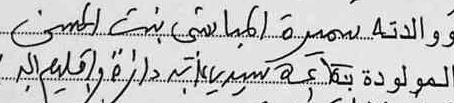 ووالدته سميرة العباسي بنت الحسن
المولودة بجماعة سيدي دائرة وإقليم